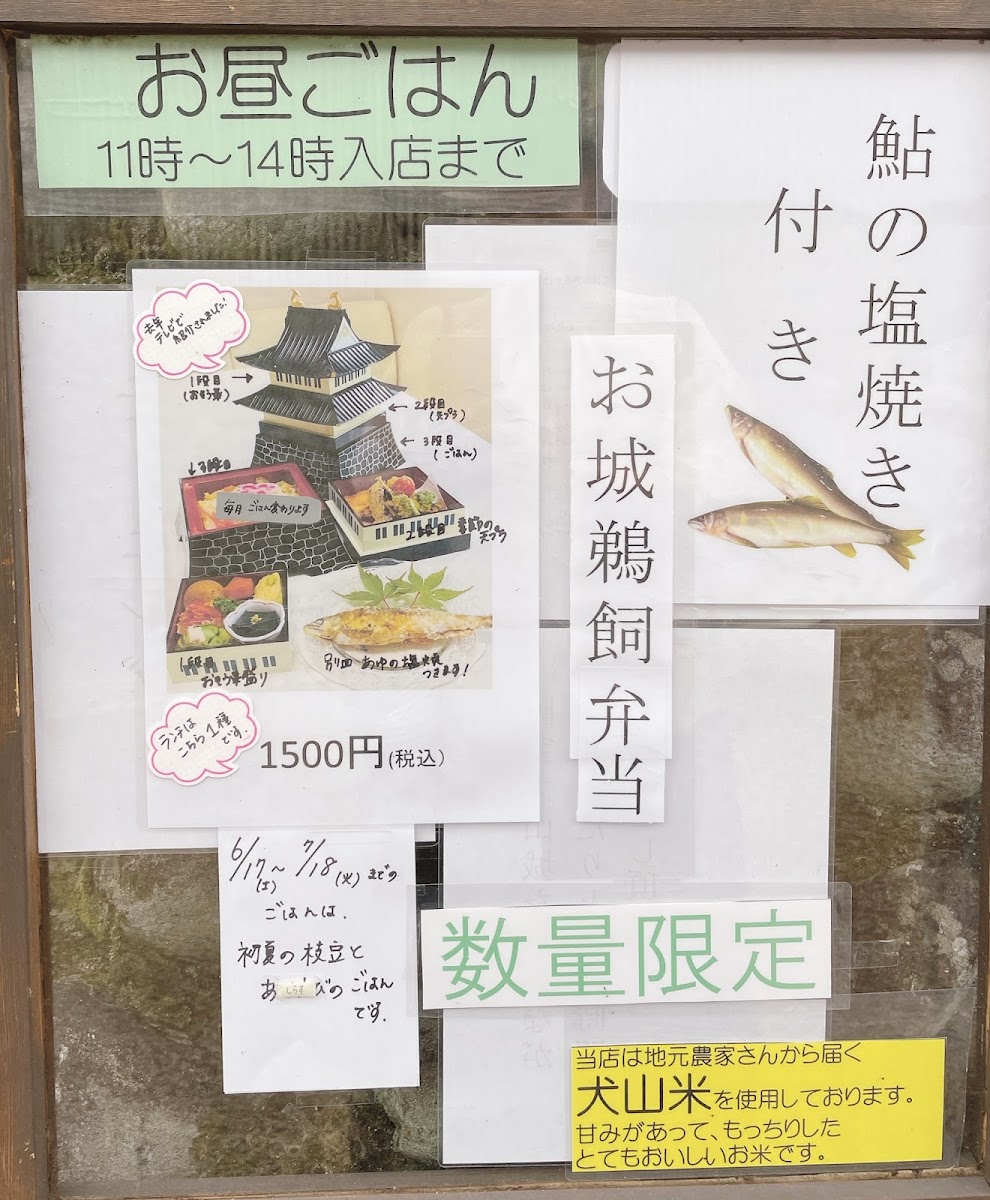 お昼ごはん
11時～14時入店まで
鮎の塩焼き
付き
お城鵜飼弁当
去年
テレビで
紹介されました!
1段目
(おそう菜)
2段目
(天プラ)
3段目
(ごはん)
3段目
毎月 ごはん変わります
2段目 季節の
天プラ
1段目
おそう菜盛り
別皿 あゆの塩焼
つきます!
ランチは
こちら1種
です。
1500円(税込)
6/17(土)～7/18(火)までの
ごはんは、
初夏の枝豆と
のごはん
です。
数量限定
当店は地元農家さんから届く
犬山米を使用しております。
甘みがあって、もっちりした
とてもおいしいお米です。